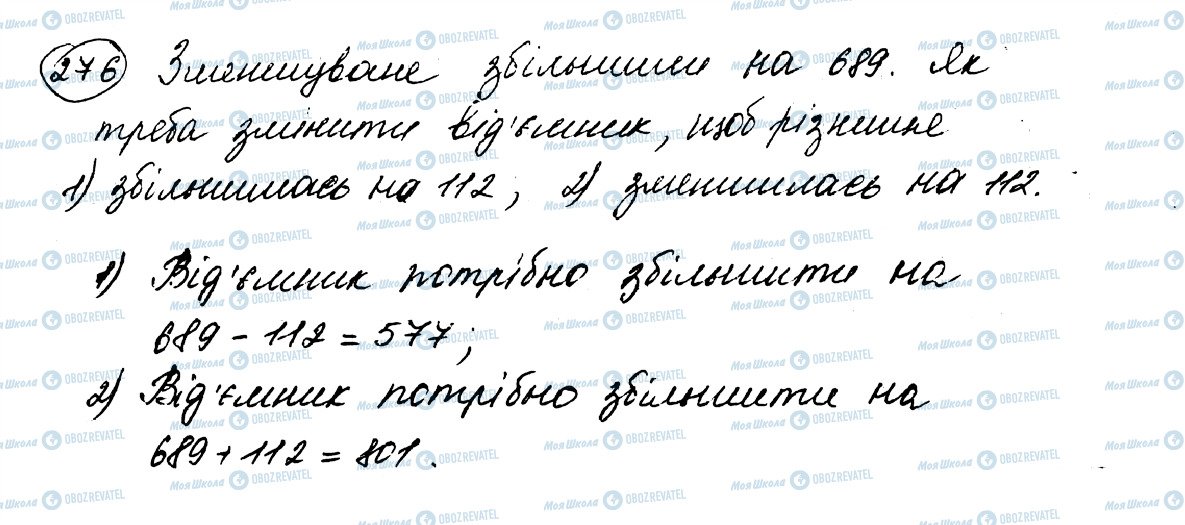 276 Зменшуване збільшили на 689. Як
треба змінити від'ємник, щоб різниця
1) збільшилась на 112; 2) зменшилась на 112.
1) Від'ємник потрібно збільшити на
689 - 112 = 577;
2) Від'ємник потрібно збільшити на
689 + 112 = 801.
Моя Школа OBOZREVATEL